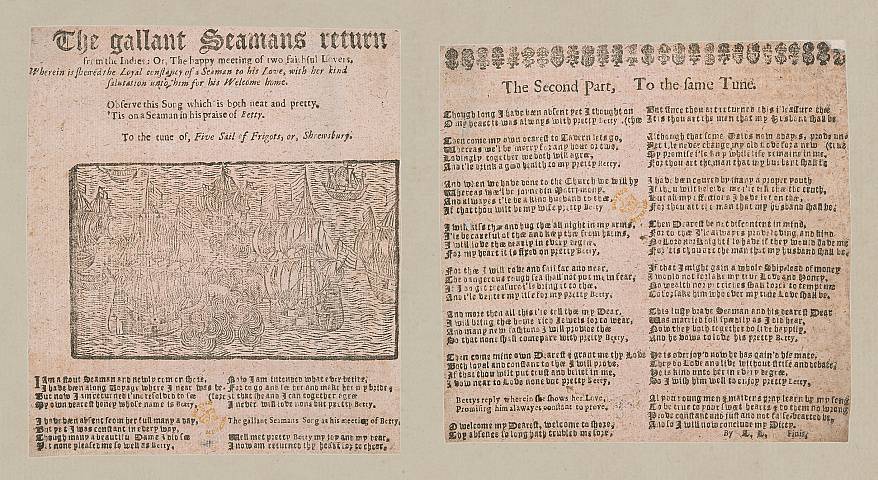 The gallant Seamans return
from the Indies: Or, The happy meeting of two faithful Lovers,
Wherein is shewed the Loyal constancy of a Seaman to his Love, with her kind
salutation unto him for his Welcome home.
Observe this Song which is both neat and pretty,
'Tis on a Seaman in his praise of Betty.
To the tune of, Five Sail of Frigots, or, Shrewsbury.
I Am a stout Seaman and newly come on shore,
I have been a long Voyage where I near was be-
But now I am returned I me resolved to see (fore
My own dearest honey whose name is Betty,
I have been absent from her full many a day,
But yet I was constant in every way,
Though many a beautiful Dame I did see
Yet none pleased me so well as Betty.
Now I am intended what ever betite,
For to go and see her and make her my bride;
If that she and I can together agree
I never will love none but pretty Betty.
The gallant Seamans Song at his meeting of Betty.
Well met pretty Betty my joy and my dear,
I now am returned thy heart for to cheer,
The Second Part, To the same Tune.
Though long I have been absent yet I thought on
O my heart it was always with pretty Betty (thee
Then come my own dearest to Tavern lets go,
Whereas we'l be merry for an hour or two,
Lovingly together we both will agree,
And i'le drink a good health to my pretty Betty.
And when we have done to the Church we will hy
Whereas wee'l be joyned in Matrimony,
And alwayes i'le be a kind husband to thee,
If that thou wilt be my wife pretty Betty
I will kiss thee and hug thee all night in my arms,
I'le be careful of thee and keep thee from harms,
I will love thee dearly in every degree,
For my heart it is fixed on pretty Betty.
For thee I will rove and sail far and near,
The dangerous rough sea shall not put me in fear,
If I do get treasure i'le bring it to thee,
And i'le venter my life for my pretty Betty,
And more then all this i'le tell thee my Dear,
I will bring thee home rich Jewels for to wear,
And many new fashions I will provide thee
So that none shall compare with pretty Betty,
Then come mine own Dearest & grant me thy Love
Both loyal and constant to thee I will prove,
If that thou wilt put trust and belief in me,
I vow near to Love none but pretty Betty,
Bettys reply wherein she shows her Love,
Promising him alwayes constant to prove.
O welcome my Dearest, welcome to shore,
Thy absence so long hath troubled me sore,
But since thou art returned this i'le assure thee
It is thou art the man that my Husband shall be.
Although that some Maids now adays, prove un-
Yet i'le never change my old Love for a new
My promise i'le keep while life remains in me,
For thou art the man that my husband shall be
I have been courted by many a proper youth
If thou wilt believe me i'le tell thee the truth,
But all my affections I have set on thee,
For thou art the man that my husband shall be,
Then Dearest be not discontent in mind,
For to thee i'le always prove loving and kind,
No Lord nor Knight I'o have if they would have me
For tis thou art the man that my husband shall be,
If that I might gain a whole Shipload of money
I would not forsake my true Love and Honey,
No wealth nor riches shall force to tempt me
To forsake him who ever my true Love shall be.
This lusty brave Seaman and his dearest Dear
Was married full speedily as I did hear,
Now they both together do live happily,
And he vows to love his pretty Betty.
He is over joy'd now he has gain'd his mate,
They do Love and live without strife and debate,
He is kind unto her in every degree,
So I wish him well to enjoy pretty Betty,
All you young men & maidens pray learn by my song
To be true to your sweet hearts & do them no wrong
Prove constant and just and not false hearted be,
And so I will now conclude my Ditty.
By
Finis,